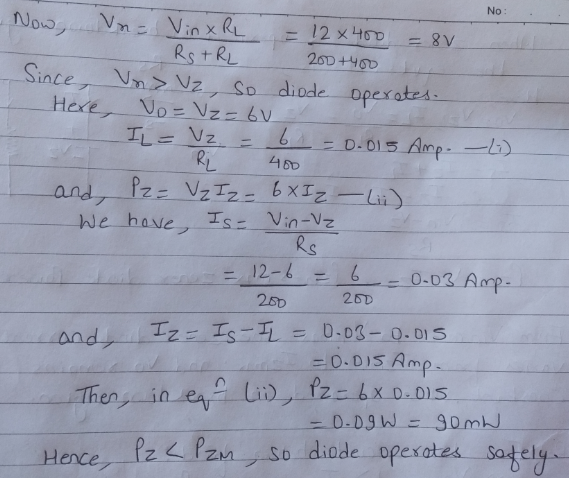 No:
Now, Vn = Vin x RL / Rs + RL = 12 x 400 / 200 + 400 = 8V
Since, Vn > Vz, so diode operates.
Here, Vo = Vz = 6V
IL = Vz / RL = 6 / 400 = 0.015 Amp. — (i)
and, Pz = VzIz = 6 x Iz — (ii)
We have, Is = Vin - Vz / Rs
= 12 - 6 / 200 = 6 / 200 = 0.03 Amp.
and, Iz = Is - IL = 0.03 - 0.015
= 0.015 Amp.
Then, in eqn (ii), Pz = 6 x 0.015
= 0.09W = 90mW
Hence, Pz < PZM, so diode operates safely.